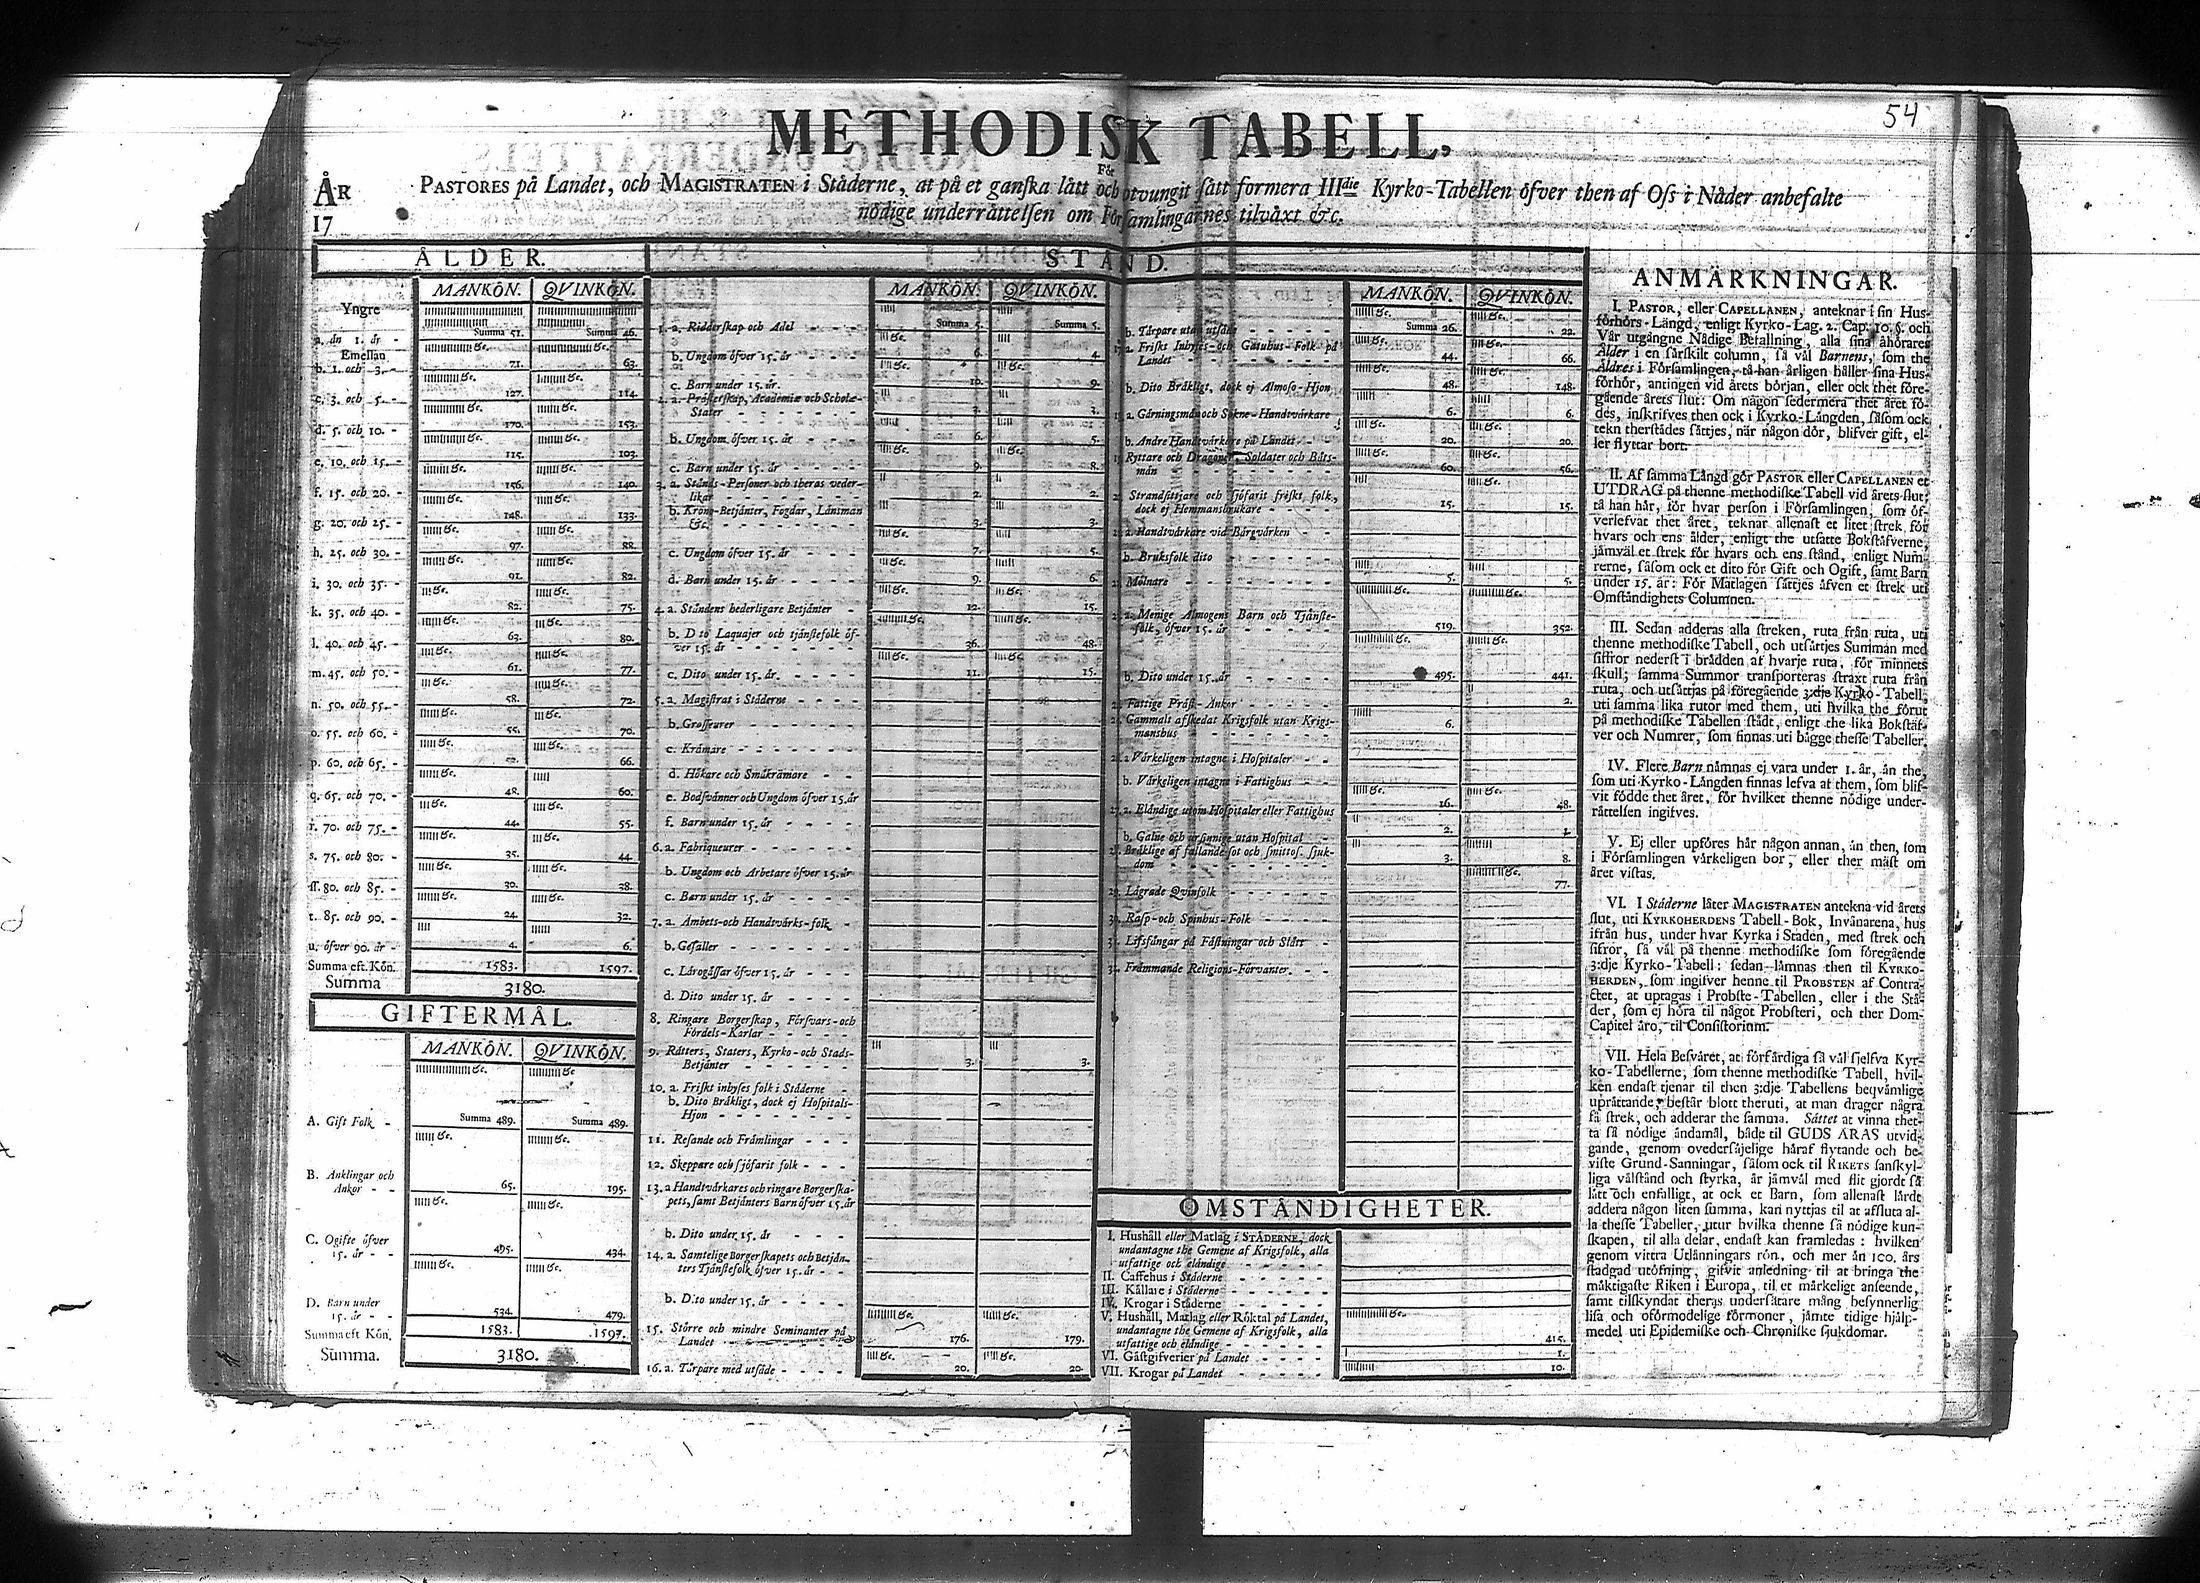 54
METHODISK TABELL,
För
ÅR PASTORES på Landet, och MAGISTRATEN i Städerne, at på et ganska lätt och otvungit sätt formera IIIdie Kyrko-Tabellen öfver then af Oss i Nåder anbefalte
17 nödige underrättelsen om Församlingarnes tilväxt &c.
ÅLDER.
MANKÖN. QVINKÖN.
Yngre
a. än 1. år - Summa 51. Summa 46.
Emellan
b. 1. och 3. - 71. 63.
c. 3. och 5. - 127. 114.
d. 5. och 10. - 170. 153.
e. 10. och 15. - 115. 103.
f. 15. och 20. - 156. 140.
g. 20. och 25. - 148. 133.
h. 25. och 30. - 97. 88.
i. 30. och 35. - 91. 82.
k. 35. och 40. - 82. 75.
l. 40. och 45. - 63. 80.
m. 45. och 50. - 61. 77.
n. 50. och 55. - 58. 72.
o. 55. och 60. - 55. 70.
p. 60. och 65. - 66.
q. 65. och 70. - 48. 60.
r. 70. och 75. - 44. 55.
s. 75. och 80. - 35. 44.
ss. 80. och 85. - 30. 38.
t. 85. och 90. - 24. 32.
u. öfver 90. år - 4. 6.
Summa eft. Kön. 1583. 1597.
Summa 3180.
GIFTERMÅL.
MANKÖN. QVINKÖN.
A. Gift Folk - Summa 489. Summa 489.
B. Änklingar och
Änkor - - 65. 195.
C. Ogifte öfver
15. år - - 495. 434.
D. Barn under
15. år - - 534. 479.
Summa eft Kön. 1583. 1597.
Summa. 3180.
STÅND.
MANKÖN. QVINKÖN.
1. a. Ridderskap och Adel Summa 5. Summa 5.
b. Ungdom öfver 15. år 6. 4.
c. Barn under 15. år. 10. 9.
2. a. Prästerskap, Academiæ och Scholæ-
Stater 3. 3.
b. Ungdom öfver 15. år 6. 5.
c. Barn under 15. år 9. 8.
3. a. Stånds-Personer och theras veder-
likar 2. 2.
b. Krono-Betjänter, Fogdar, Länsmän
&c. 3. 3.
c. Ungdom öfver 15. år 7. 5.
d. Barn under 15. år 9. 6.
4. a. Ståndens hederligare Betjänter 12. 15.
b. Dito Laquajer och tjänstefolk öf-
ver 15. år 36. 48.
c. Dito under 15. år. 11. 15.
5. a. Magistrat i Städerne
b. Grosseurer
c. Krämare
d. Hökare och Småkrämare
e. Bodsvänner och Ungdom öfver 15. år
f. Barn under 15. år
6. a. Fabriqueurer
b. Ungdom och Arbetare öfver 15. år
c. Barn under 15. år
7. a. Ämbets-och Handtvärks-folk
b. Gesäller
c. Lärogåssar öfver 15. år
d. Dito under 15. år
8. Ringare Borgerskap, Försvars-och
Fördels-Karlar
9. Rätters, Staters, Kyrko-och Stads-
Betjänter 3. 3.
10. a. Friskt inhyses folk i Städerne
b. Dito Bräkligt, dock ej Hospitals-
Hjon
11. Resande och Främlingar
12. Skeppare och sjöfarit folk
13. a Handtvärkares och ringare Borgerska-
pets, samt Betjänters Barn öfver 15. år
b. Dito under 15. år
14. a. Samtelige Borgerskapets och Betjän-
ters Tjänstefolk öfver 15. år
b. Dito under 15. år
15. Större och mindre Seminanter på
Landet 176. 179.
16. a. Torpare med utsäde 20. 20.
MANKÖN. QVINKÖN.
b. Torpare utan utsäde Summa 26. 22.
a. Friskt Inhyses-och Gatuhus-Folk på
Landet 44. 66.
b. Dito Bräkligt, dock ej Almoso-Hjon 48. 148.
a. Gärningsmän och Sokne-Handtvärkare 6. 6.
b. Andre Handtvärkare på Landet 20. 20.
Ryttare och Dragoner, Soldater och Båts-
män 60. 56.
Strandsittjare och sjöfarit friskt folk,
dock ej Hemmansbrukare 15. 15.
a. Handtvärkare vid Bärgvärken
b. Bruksfolk dito
Mölnare 5. 5.
a. Menige Almogens Barn och Tjänste-
folk, öfver 15. år 519. 352.
b. Dito under 15. år 495. 441.
Fattige Präst-Änkor 2.
Gammalt afskedat Krigsfolk utan Krigs-
manshus 6.
a. Värkeligen intagne i Hospitaler
b. Värkeligen intagne i Fattighus
27. a. Eländige utom Hospitaler eller Fattighus 16. 48.
b. Galne och ursinnige utan Hospital 2. 1.
28. Bräklige af fallande sot och smittos. sjuk-
dom 3. 8.
29. Lägrade Qvinfolk 77.
30. Rasp-och Spinhus-Folk
31. Lifsfångar på Fästningar och Slått
32. Främmande Religions-Förvanter.
OMSTÄNDIGHETER.
I. Hushåll eller Matlag i STÄDERNE, dock
undantagne the Gemene af Krigsfolk, alla
utfattige och eländige
II. Caffehus i Städerne
III. Källare i Städerne
IV. Krogar i Städerne
V. Hushåll, Matlag eller Röktal på Landet,
undantagne the Gemene af Krigsfolk, alla
utfattige och eländige 415.
VI. Gästgifverier på Landet 1.
VII. Krogar på Landet 10.
ANMÄRKNINGAR.
I. PASTOR, eller CAPELLANEN, anteknar i sin Hus-
förhörs-Längd, enligt Kyrko-Lag. 2. Cap. 10. §. och
Vår utgångne Nådige Befallning, alla sina åhörares
Ålder i en särskilt column, så väl Barnens, som the
Äldres i Församlingen, tå han årligen håller sina Hus-
förhör, antingen vid årets början, eller ock thet före-
gående årets slut: Om någon sedermera thet året fö-
des, inskrifves then ock i Kyrko-Längden, såsom ock
tekn therstädes sättjes, när någon dör, blifver gift, el-
ler flyttar bort.
II. Af samma Längd gör PASTOR eller CAPELLANEN et
UTDRAG på thenne methodiske Tabell vid årets slut;
tå han här, för hvar person i Församlingen, som öf-
verlefvat thet året, teknar allenast et litet strek för
hvars och ens ålder, enligt the utsatte Bokstäfverne,
jämväl et strek för hvars och ens stånd, enligt Num-
rerne, såsom ock et dito för Gift och Ogift, samt Barn
under 15. år: För Matlagen sättjes äfven et strek uti
Omständighets Columnen.
III. Sedan adderas alla streken, ruta från ruta, uti
thenne methodiske Tabell, och utsättjes Summan med
siffror nederst i brädden af hvarje ruta, för minnets
skull; samma Summor transporteras straxt ruta från
ruta, och utsättjas på föregående 3:dje Kyrko-Tabell,
uti samma lika rutor med them, uti hvilka the förut
på methodiske Tabellen städt, enligt the lika Bokstäf-
ver och Numrer, som finnas uti bägge thesse Tabeller.
IV. Flere Barn nämnas ej vara under 1. år, än the,
som uti Kyrko-Längden finnas lefva af them, som blif-
vit födde thet året, för hvilket thenne nödige under-
rättelsen ingifves.
V. Ej eller upföres här någon annan, än then, som
i Församlingen värkeligen bor, eller ther mäst om
året vistas.
VI. I Städerne låter MAGISTRATEN antekna vid årets
slut, uti KYRKOHERDENS Tabell-Bok, Invånarena, hus
ifrån hus, under hvar Kyrka i Staden, med strek och
sifror, så väl på thenne methodiske som föregående
3:dje Kyrko-Tabell: sedan lämnas then til KYRKO-
HERDEN, som ingifver henne til PROBSTEN af Contra-
ctet, at uptagas i Probste-Tabellen, eller i the Stä-
der, som ej höra til något Probsteri, och ther Dom-
Capitel äro, til Consistorium.
VII. Hela Besväret, at förfärdiga så väl sjelfva Kyr-
ko-Tabellerne, som thenne methodiske Tabell, hvil-
ken endast tjenar til then 3:dje Tabellens beqvämlige
uprättande, består blott theruti, at man drager några
få strek, och adderar the samma. Sättet at vinna thet-
ta så nödige ändamål, både til GUDS ÄRAS utvid-
gande, genom ovedersäjelige häraf flytande och be-
viste Grund-Sanningar, såsom ock til RIKETS sanskyl-
liga välstånd och styrka, är jämväl med flit gjordt så
lätt och enfalligt, at ock et Barn, som allenast lärdt
addera någon liten summa, kan nyttjas til at afsluta al-
la thesse Tabeller, utur hvilka thenne så nödige kun-
skapen, til alla delar, endast kan framledas: hvilken
genom vittra Utlänningars rön, och mer än 100. års
stadgad utöfning, gifvit anledning til at bringa the
mäktigaste Riken i Europa, til et märkeligt anseende,
samt tilskyndat theras undersåtare mång besynnerlig
lisa och oförmodelige förmoner, jämte tidige hjälp-
medel uti Epidemiske och Chroniske sjukdomar.